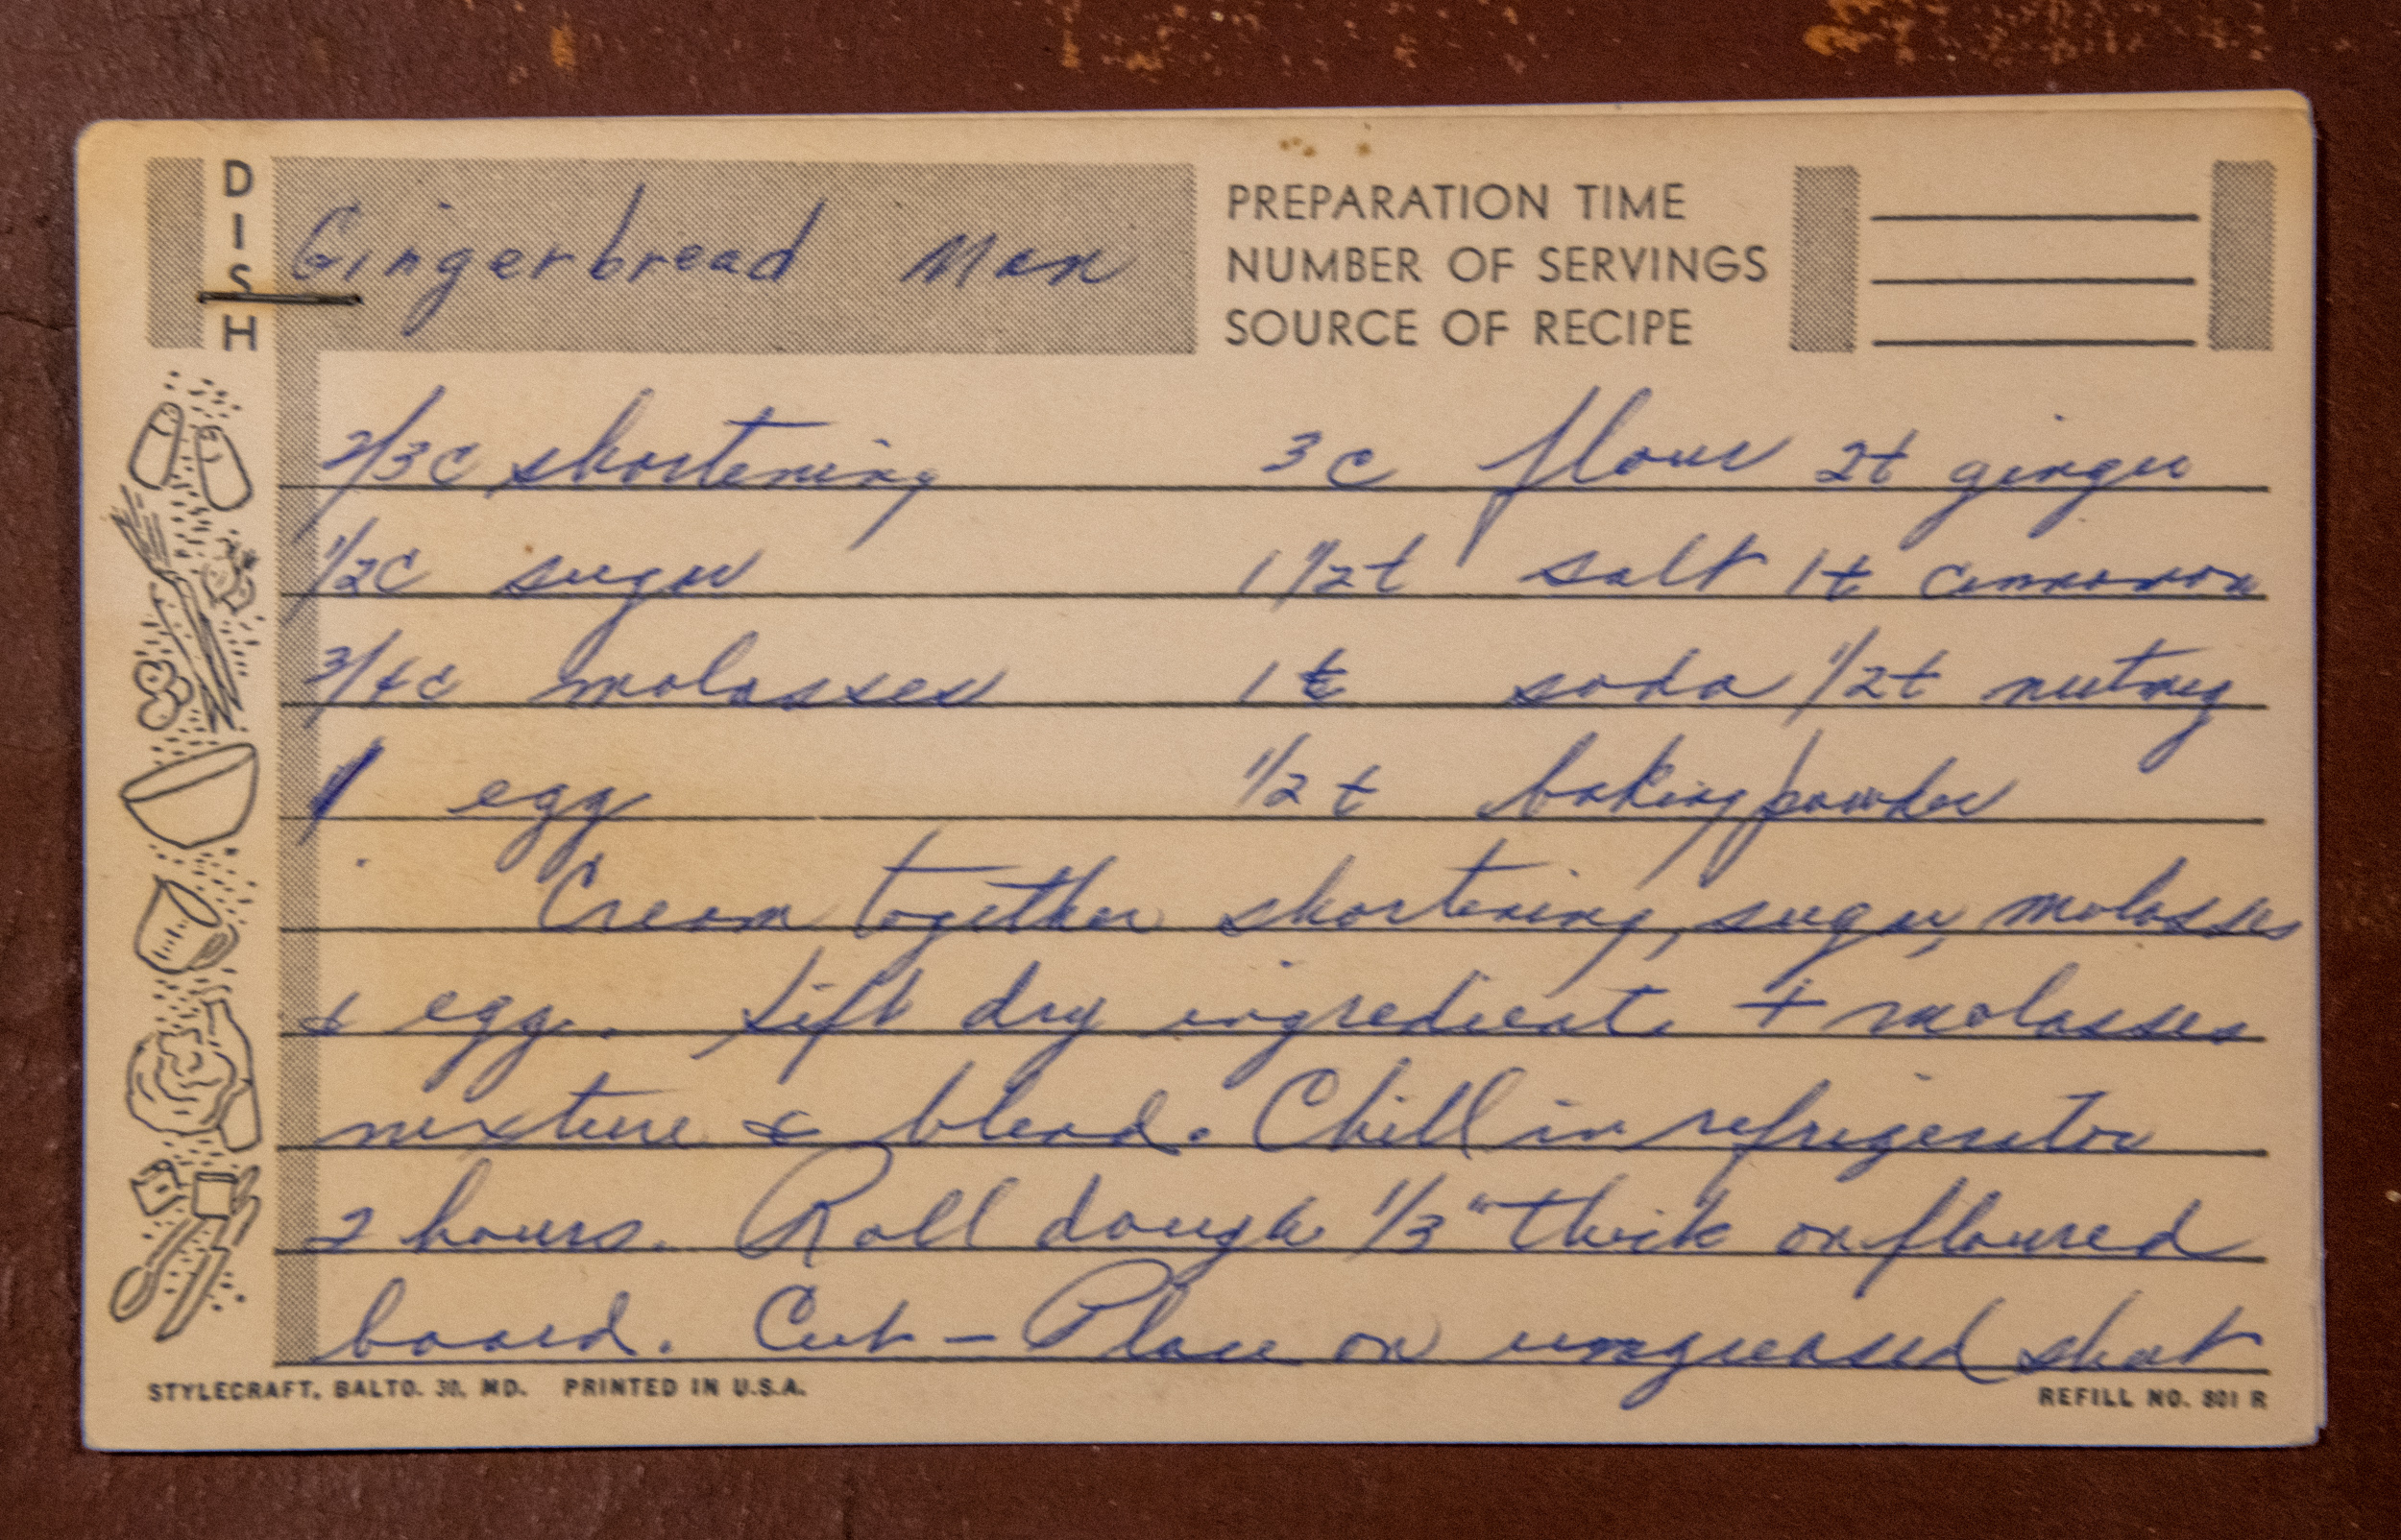 DISH
Gingerbread Man
PREPARATION TIME
NUMBER OF SERVINGS
SOURCE OF RECIPE
2/3c shortening 3 c flour 2t ginger
1/2c sugar 1 1/2t salt 1t cinnamon
3/4c molasses 1t soda 1/2t nutmeg
1 egg 1/2 t baking powder
Cream together shortening, sugar, molasses
& egg. Sift dry ingredients + molasses
mixture & blend. Chill in refrigerator
2 hours. Roll dough 1/3" thick on floured
board. Cut - Place on ungreased sheet
STYLECRAFT, BALTO. 30, MD. PRINTED IN U.S.A.
REFILL NO. 801 R